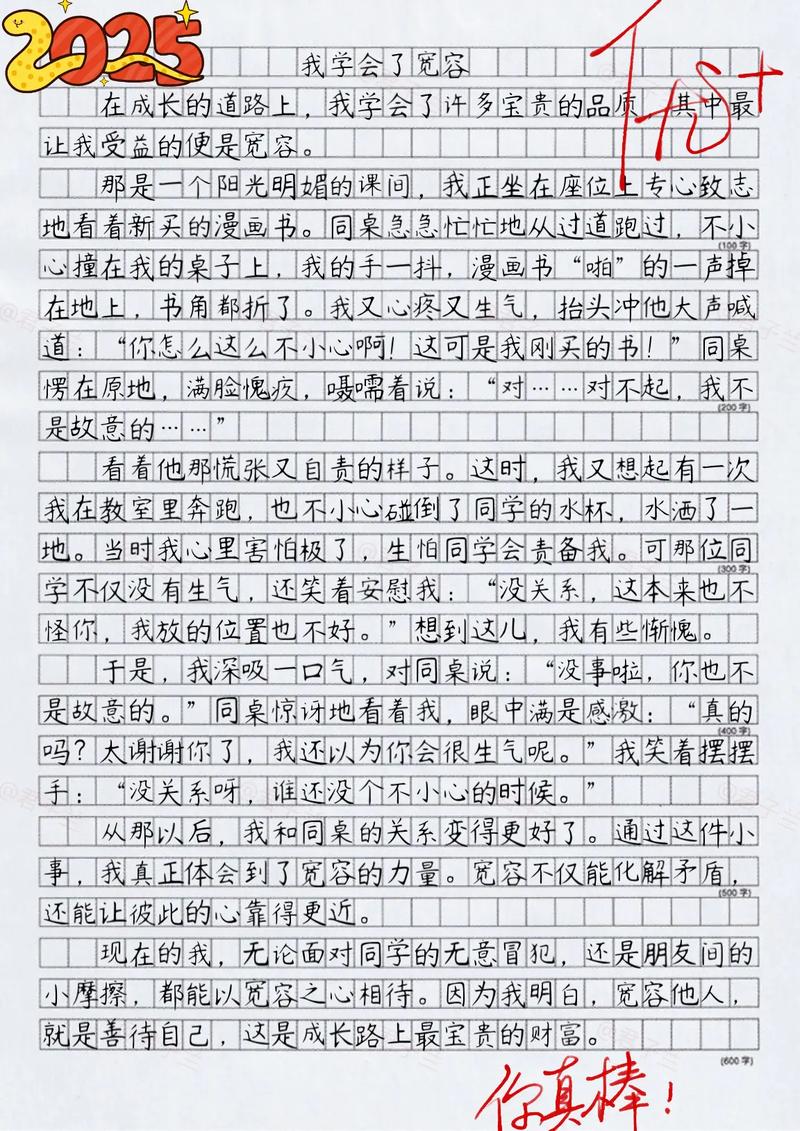 2025
我学会了宽容
优+
在成长的道路上，我学会了许多宝贵的品质，其中最
让我受益的便是宽容。
那是一个阳光明媚的课间，我正坐在座位上专心致志
地看着新买的漫画书。同桌急急忙忙地从过道跑过，不小
(100字)
心撞在我的桌子上，我的手一抖，漫画书“啪”的一声掉
在地上，书角都折了。我又心疼又生气，抬头冲他大声喊
道：“你怎么这么不小心啊！这可是我刚买的书！”同桌
愣在原地，满脸愧疚，嗫嚅着说：“对……对不起，我不
(200字)
是故意的……”
看着他那慌张又自责的样子。这时，我又想起有一次
我在教室里奔跑，也不小心碰倒了同学的水杯，水洒了一
地。当时我心里害怕极了，生怕同学会责备我。可那位同
(300字)
学不仅没有生气，还笑着安慰我：“没关系，这本来也不
怪你，我放的位置也不好。”想到这儿，我有些惭愧。
于是，我深吸一口气，对同桌说：“没事啦，你也不
是故意的。”同桌惊讶地看着我，眼中满是感激：“真的
(400字)
吗？太谢谢你了，我还以为你会很生气呢。”我笑着摆摆
手：“没关系呀，谁还没个不小心的时候。”
从那以后，我和同桌的关系变得更好了。通过这件小
事，我真正体会到了宽容的力量。宽容不仅能化解矛盾，
(500字)
还能让彼此的心靠得更近。
现在的我，无论面对同学的无意冒犯，还是朋友间的
小摩擦，都能以宽容之心相待。因为我明白，宽容他人，
就是善待自己，这是成长路上最宝贵的财富。
(600字)
你真棒！